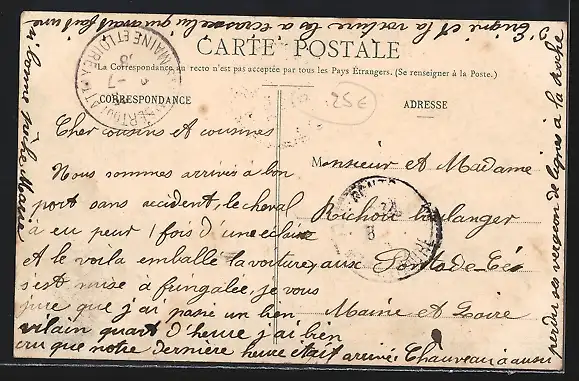 CARTE POSTALE
(La Correspondance au recto n'est pas acceptée par tous les Pays Étrangers. (Se renseigner à la Poste.)
CORRESPONDANCE
ADRESSE
25€
MAINE ET LOIRE
Cher cousins et cousines
Nous sommes arrivés à bon
port sans accident, le cheval
a eu peur 1 fois d'une éclair
et le voila emballé la voiture,
s'est mise à je vous
jure que j'ai passé un bien
vilain quart d'heure j'ai bien
cru que notre dernière heure était arrivé. Chauveau a aussi
perdu sa de lignes à la roche
et la voiture l'a écrasée lui avait fait une
si bonne
Monsieur et Madame
Richou boulanger
aux Ponts-de-Cé
Maine et Loire